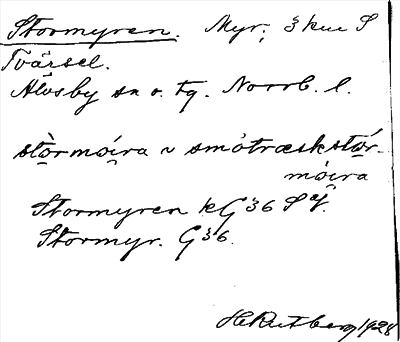 Stormyren. Myr; 3 km S
Tvärsel.
Älvsby sn o. tg. Norrb. l.
stòrmo̯i̯ra ~ smȯtræskstǫr-
mo̯i̯ra
Stormyren kG 36 S Ä.
Stormyr. G 36.
H. Rutberg 1928